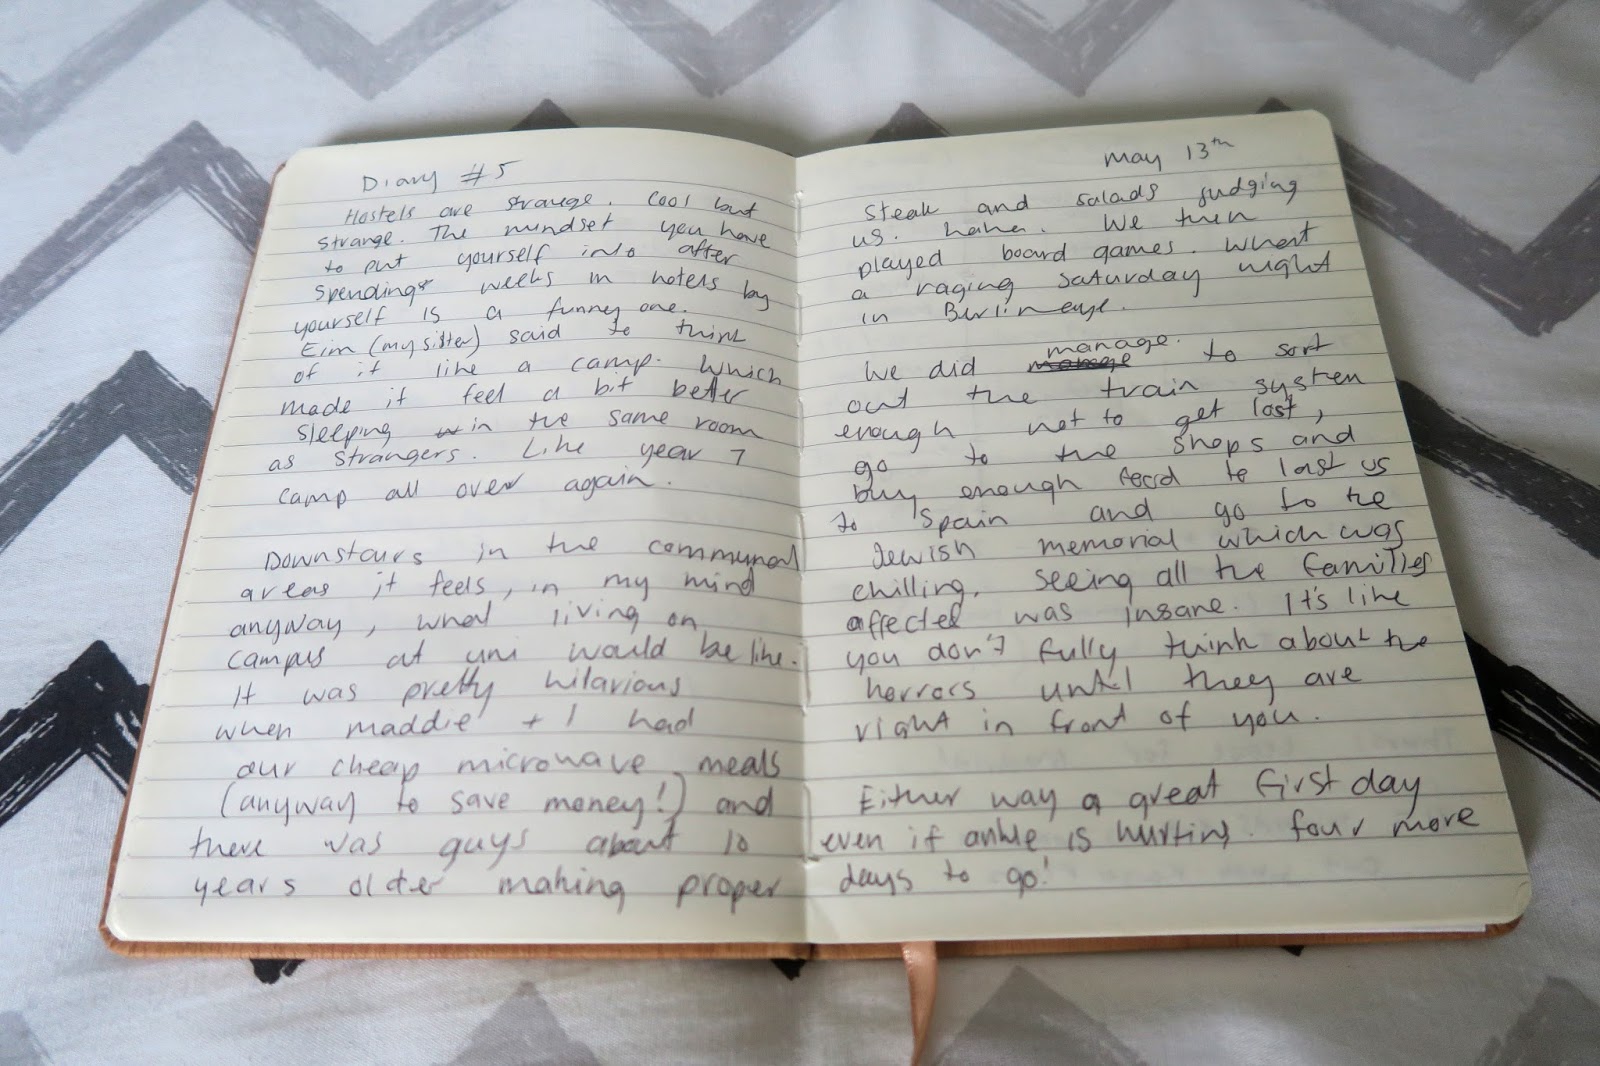 Diary #5
Hostels are strange. Cool but
strange. The mindset you have
to put yourself into after
spending weeks in hotels by
yourself is a funny one.
Eim (my sister) said to think
of it like a camp. Which
made it feel a bit better
sleeping in the same room
as strangers. Like year 7
camp all over again.
Downstairs in the communal
areas it feels, in my mind
anyway, what living on
campus at uni would be like.
It was pretty hilarious
when maddie + I had
our cheap microwave meals
(anyway to save money!) and
there was guys about 10
years older making proper
May 13th
Steak and salads judging
us. haha. We then
played board games. What
a raging Saturday night
in Berlin eye.
We did manage to sort
out the train system
enough not to get lost,
go to the shops and
buy enough food to last us
to Spain and go to the
Jewish memorial which was
chilling. Seeing all the families
affected was insane. It's like
you don't fully think about the
horrors until they are
right in front of you.
Either way a great first day
even if ankle is hurting. four more
days to go!